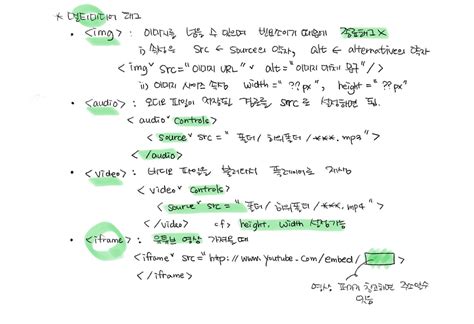 * 멀티미디어 태그
• <img> : 이미지를 넣을 수 있으며 빈태그이기 때문에 종료태그 X
i) 속성은 src ← source의 약자, alt ← alternative의 약자
<img˅ src="이미지 URL"˅ alt="이미지 대체 문구"/>
ii) 이미지 사이즈 속성 width="??px", height="??px"
• <audio> : 오디오 파일이 저장된 경로를 src로 설정하면 됨.
<audio˅ controls>
<source˅ src="폴더/하위폴더/***.mp3">
</audio>
• <video> : 비디오 파일을 불러와서 플레이어로 재생
<video˅ controls>
<source˅ src="폴더/하위폴더/***.mp4">
</video> cf) height, width 설정가능
• <iframe> : 유튜브 영상 가져올 때
<iframe˅ src="http://www.youtube.com/embed/
</iframe>
영상 퍼가기 참고하면 주소알수
있음